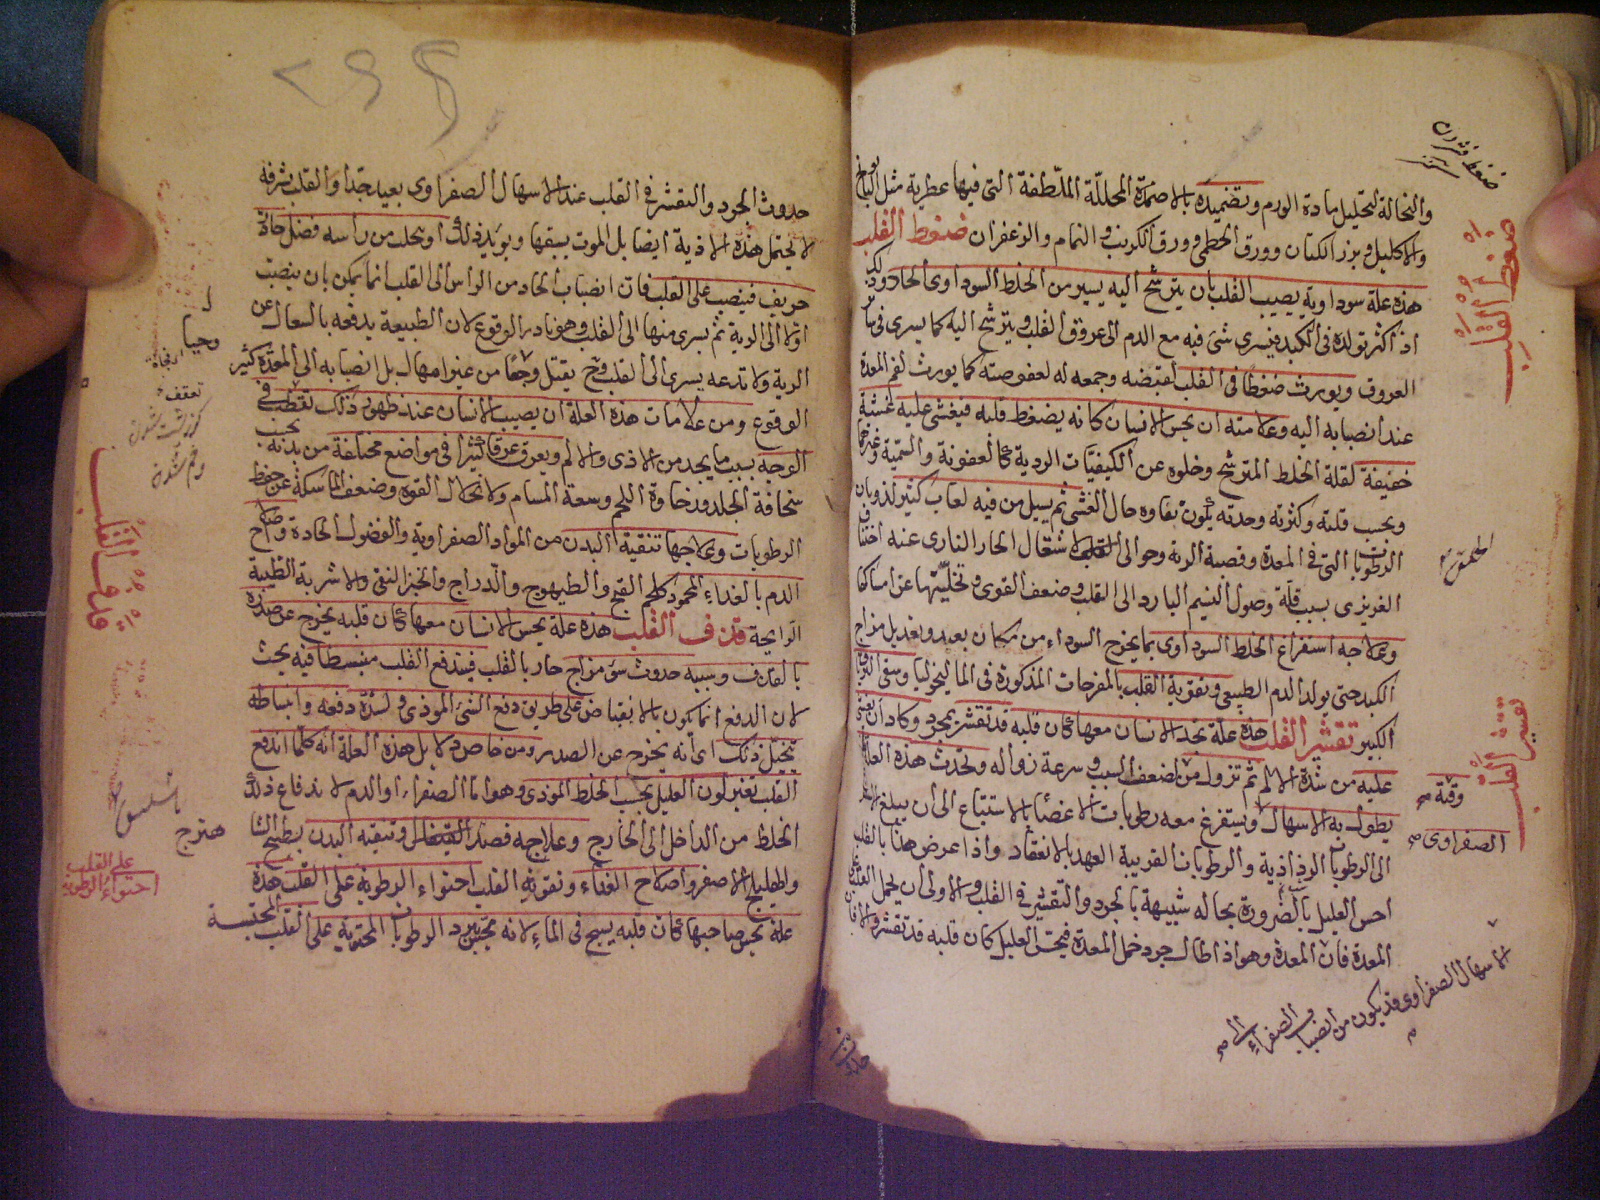 والنخالة لتحليل مادة الورم وبتضميده بالاضمدة المحللة الملطفة التى فيها عطرية مثل البابونج
والاكليل وبزر الكتان وورق الخطمى وورق الكرنب و النمام والزعفران ضغط القلب
هذه علة سوداوية يصيب القلب بان يترشح اليه يسير من الخلط السوداوى الحاد وذلك
اذ اكثر تولده فى الكبد فيسرى شئ فيه مع الدم الى عروق القلب ويترشح اليه كما يسرى فى سائر
العروق ويورث ضغطا فى القلب لقبضه وجمعه له لعفوصته كما يورث لفم المعدة
عند انصبابه اليه وعلامته ان يحس الانسان كانه يضغط قلبه فيغشى عليه غشية
خفيفة لقلة الخلط المترشح وخلوه عن الكيفيات الردية كالعفونة والسمية وغيرهما
وبحسب قلته وكثرته وحدته يكون بقاوه حال الغشى ثم يسيل من فيه لعاب كثير لذوبان
الرطوبات التى فى المعدة وقصبة الرئة وحوالى القلب لاشتعال الحار النارى عند اختناق
الغريزى بسبب قلة وصول النسيم البارد الى القلب وضعف القوى وتخليتها عن امساكها
وعلاجه استفراغ الخلط السوداوى بما يخرج السوداء من مكان بعيد وتعديل مزاج
الكبد حتى يولد الدم الطبيعى وتقوية القلب بالمفرحات المذكورة فى الماليخوليا وسقى الترياق
الكبير تقشر القلب هذه علة تجد الانسان معها كان قلبه قد تقشر بجرد وكاد ان يغشى
عليه من شدة الالم ثم تزول من لضعف السبب وسرعة زواله وتحدث هذه العلة
بطول به الاسهال ويستفرغ معه رطوبات الاعضا بالاستتباع الى ان يبلغ الامر
الى الرطوبات الرذاذية والرطوبات القريبة العهد بالانعقاد واذا عرض هذا بالقلب
احس العليل بالضرورة بحاله شبيهة بالجرد والتقشر فى القلب والاولى ان يحمل القلب على
المعدة فان المعدة وهو اذ اطال جرد خمل المعدة فيحس العليل كان قلبه قد تقشر والا فان
ضغط القلب
تقشر القلب
وقتة
الصفراوى
الاسهال الصفراوى قد يكون من انصباب الصفراء الى
حدوث الجرد والتقشر فى القلب عند الاسهال الصفراوى بعيد جدا والقلب لشرفه
لا يحتمل هذه الاذية ايضا بل الموت يسبقها ويؤيد ذلك او تحلب من راسه فضل حادة
حريف فينصب على القلب فان انصباب الحاد من الراس الى القلب انما يمكن بان ينصب
اولا الى الرية ثم يسرى منها الى القلب وهو نادر الوقوع لان الطبيعة يدفعه بالسعال عن
الرية ولا تدعه يسرى الى القلب وح يقتل وحيا من غير امهال بل انصبابه الى المعدة كثير
الوقوع ومن علامات هذه العلة ان يصيب الانسان عند ظهور ذلك تقطب فى
الوجه بسبب ما يجد من الاذى والالم ويعرق عرقا كثيرا فى مواضع مختلفة من بدنه بحسب
سخافة الجلد ورخاوة اللحم وسعة المسام ولانحلال القوه وضعف الماسكة عن حفظ
الرطوبات وعلاجها تنقية البدن من المواد الصفراوية والفضول الحادة واصلاح
الدم بالغذاء المحمود كلحم القبج والطيهوج والدراج والخبز النقى والاشربة الطيبة
الرايحة قذف القلب هذه علة يحس الانسان معها كان قلبه يخرج عن صدره
بالقذف وسببه حدوث سوء مزاج حار بالقلب فيندفع القلب منبسطا فيه بحث
لان الدفع انما يكون بالانقباض على طريق دفع الشئ الموذى ولشدة دفعه وانبساطه
يتخيل ذلك اى انه يخرج عن الصدر ومن خاص دلايل هذه العلة انه كلما اندفع
القلب تغير لون العليل بحسب الخلط الموذى وهو اما الصفراء او الدم لاندفاع ذلك
الخلط من الداخل الى الخارج وعلاجه فصد القيفال وتنقية البدن بطبيخ الشا
والهليلج الاصفر واصلاح الغذاء وتقوية القلب احتواء الرطوبة على القلب هذه
علة يحس صاحبها كان قلبه يسبح فى الماء لانه يحس ببرد الرطوبات المحتوية على القلب المحتبسة
وحيا
قذف القلب
هترج
احتواء الرطوبة
على القلب